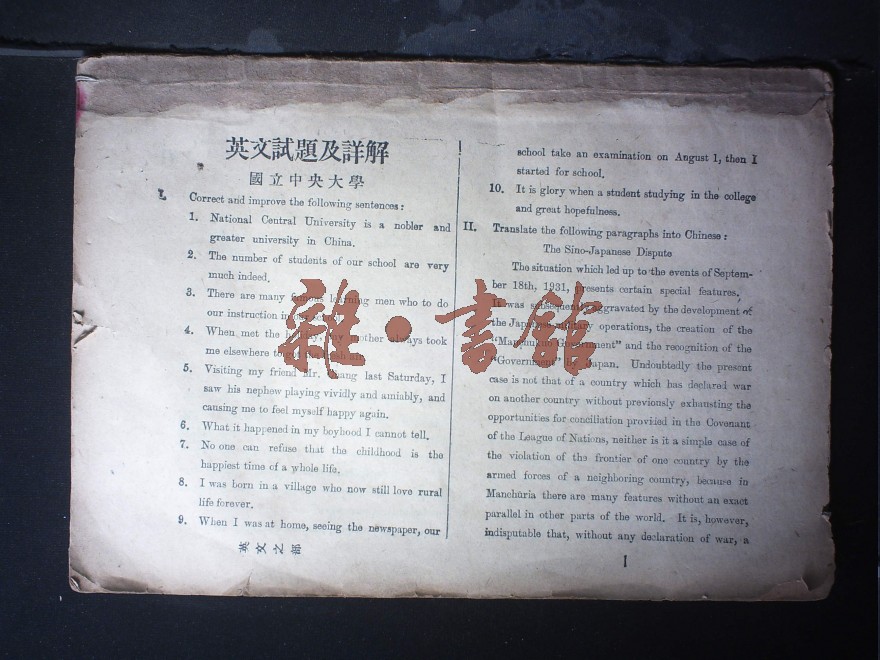 英文試題及詳解
國立中央大學
I. Correct and improve the following sentences:
1. National Central University is a nobler and
greater university in China.
2. The number of students of our school are very
much indeed.
3. There are many learning men who to do
our instruction
4. When met the my mother always took
me elsewhere to
5. Visiting my friend Mr. last Saturday, I
saw his nephew playing vividly and amiably, and
causing me to feel myself happy again.
6. What it happened in my boyhood I cannot tell.
7. No one can refuse that the childhood is the
happiest time of a whole life.
8. I was born in a village who now still love rural
life forever.
9. When I was at home, seeing the newspaper, our
英文之部
school take an examination on Angust 1, then I
started for school.
10. It is glory when a student studying in the college
and great hopefulness.
II. Translate the following paragraphs into Chinese:
The Sino-Japanese Dispute
The situation which led up to the events of Septem-
ber 18th, 1931, presents certain special features,
It was subsequently aggravated by the development of
the Japanese military operations, the creation of the
"Manchukuo Government" and the recognition of the
"Government" by Japan. Undoubtedly the present
case is not that of a country which has declared war
on another country without previously exhausting the
opportunities for conciliation provided in the Covenant
of the League of Nations, neither is it a simple case of
the violation of the frontier of one country by the
armed forces of a neighboring country, because in
Manchuria there are many features without an exact
parallel in other parts of the world. It is, however,
indisputable that, without any declaration of war, a
I
雜·書館